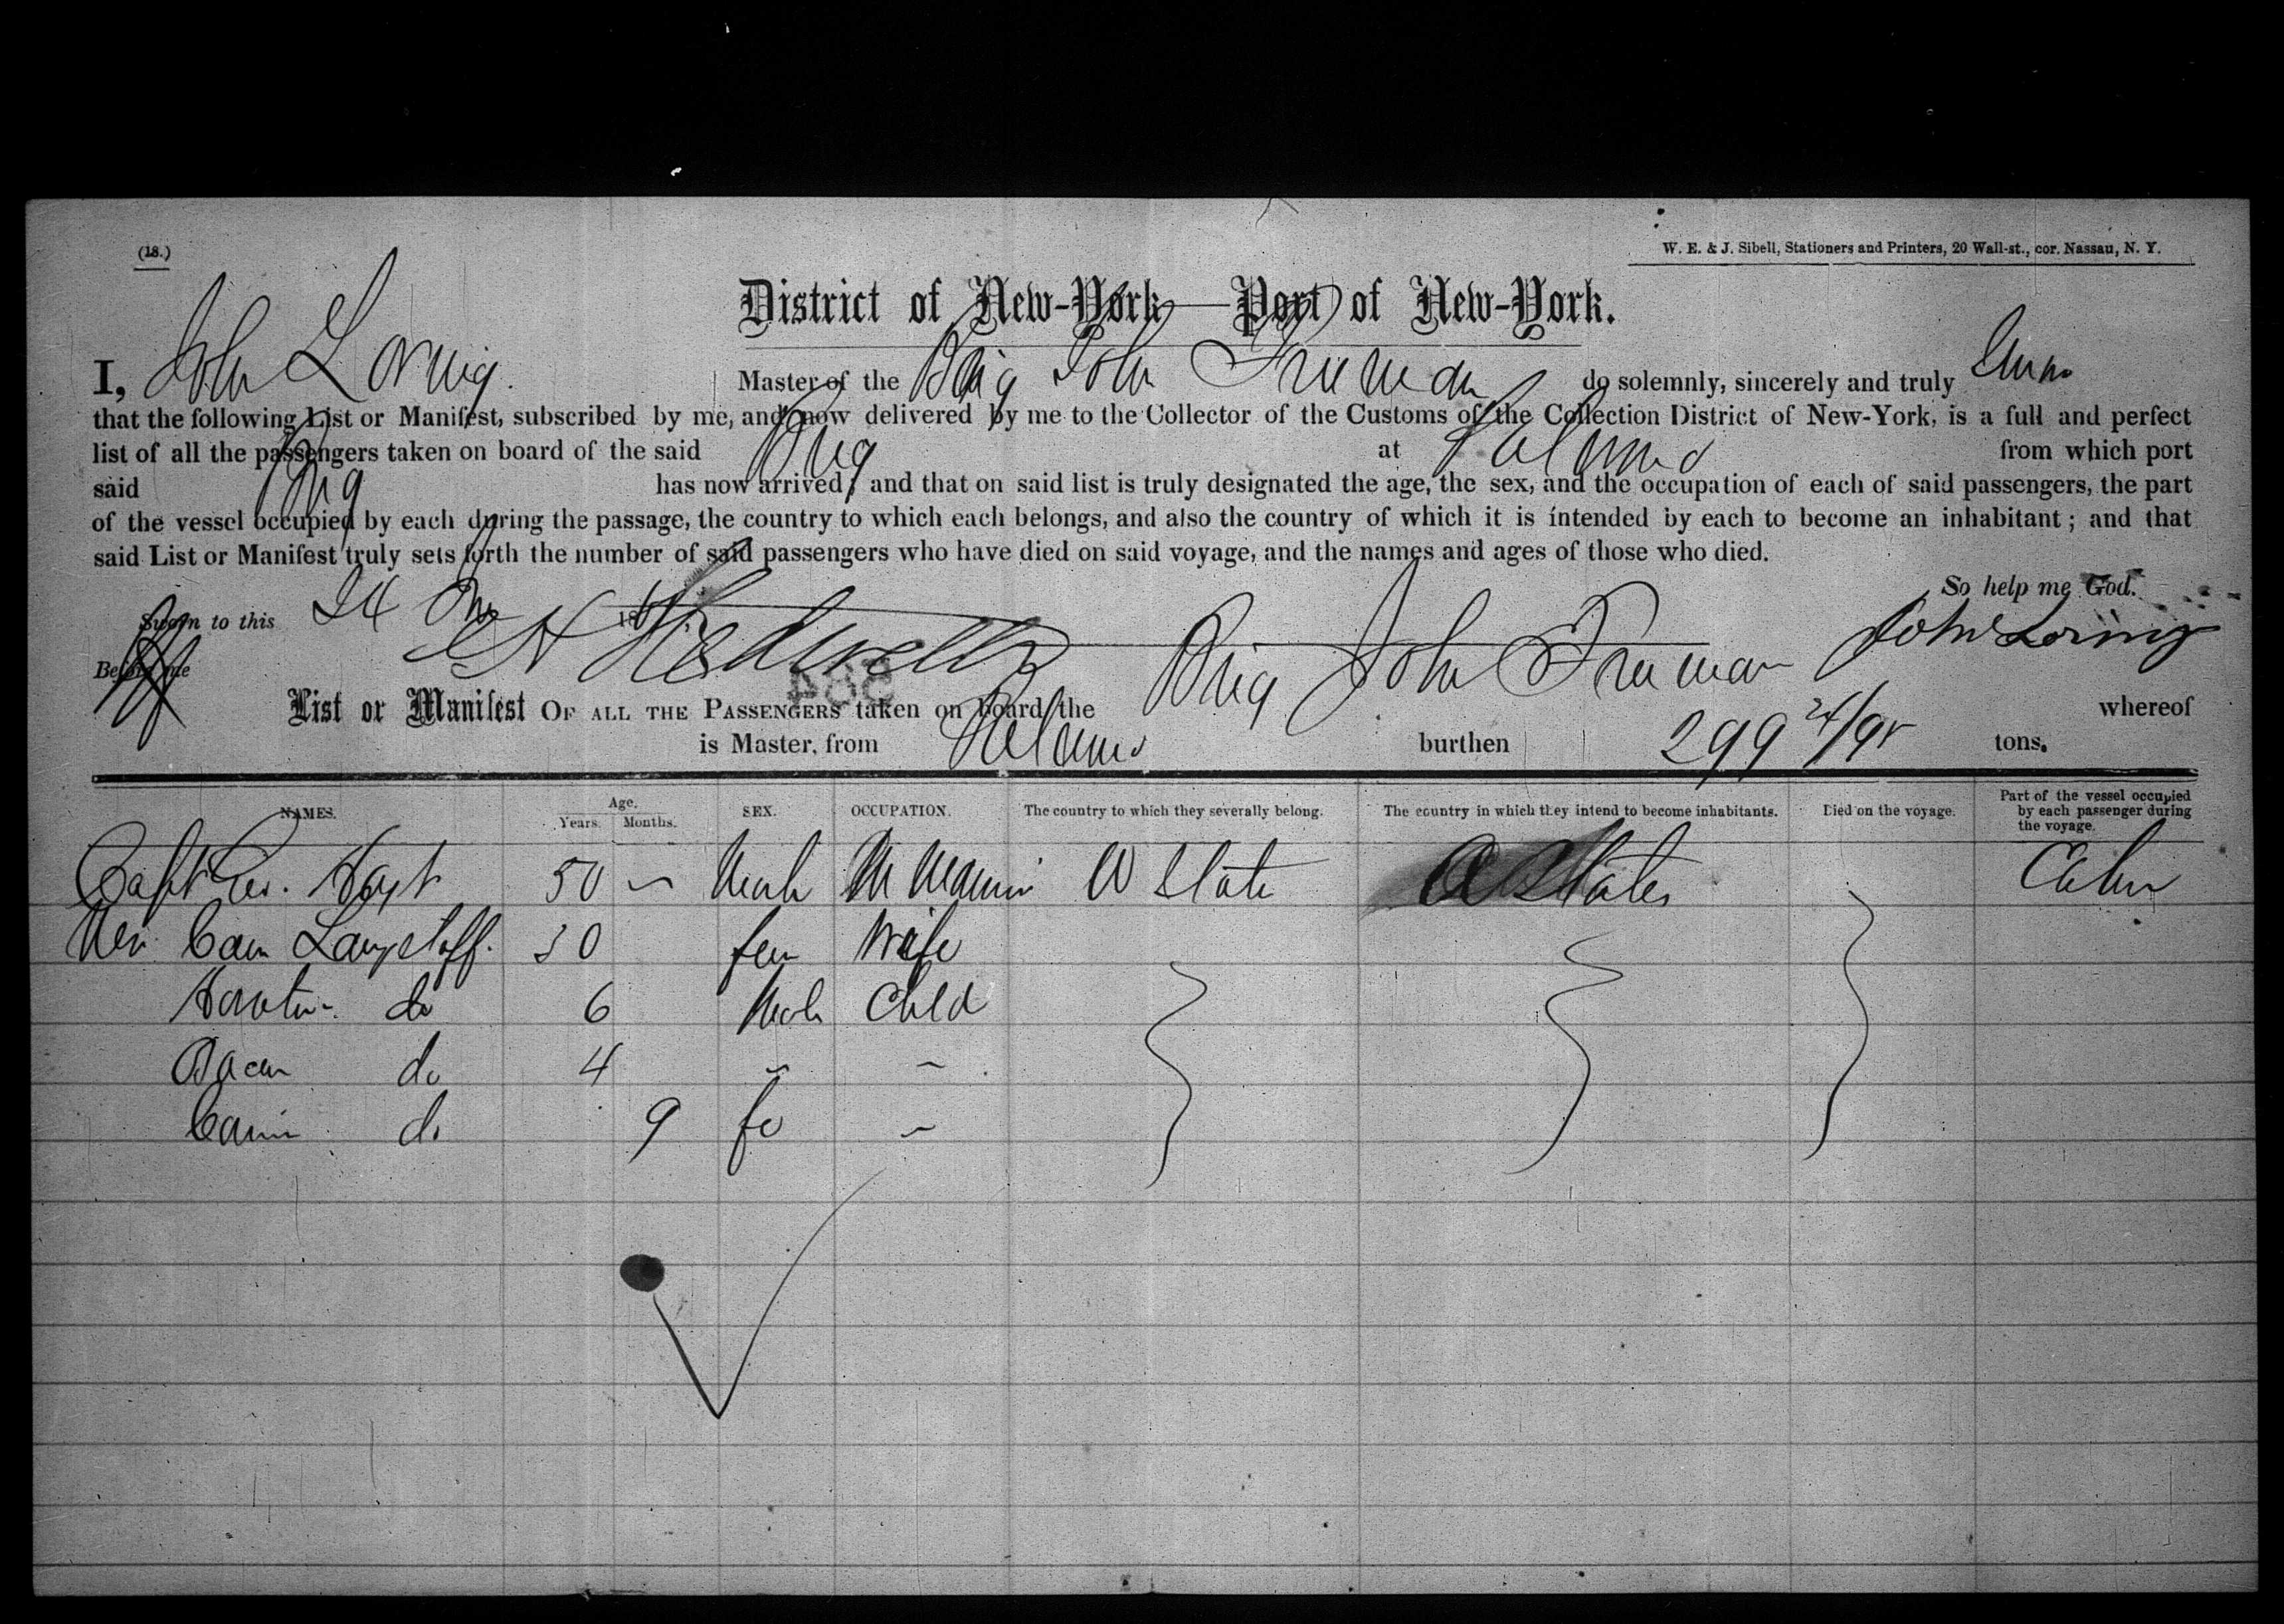 (18.)
W. E. & J. Sibell, Stationers and Printers, 20 Wall-st., cor. Nassau, N. Y.
District of New-York—Port of New-York.
I, John Loring. Master of the Brig John Freeman do solemnly, sincerely and truly Swear
that the following List or Manifest, subscribed by me, and now delivered by me to the Collector of the Customs of the Collection District of New-York, is a full and perfect
list of all the passengers taken on board of the said Brig at Palermo from which port
said Brig has now arrived; and that on said list is truly designated the age, the sex, and the occupation of each of said passengers, the part
of the vessel occupied by each during the passage, the country to which each belongs, and also the country of which it is intended by each to become an inhabitant; and that
said List or Manifest truly sets forth the number of said passengers who have died on said voyage, and the names and ages of those who died.
So help me God.
Sworn to this 24 18 John Loring
Before me
384
List or Manifest OF ALL THE PASSENGERS taken on board the Brig John Freeman whereof
is Master, from Palermo burthen 299 24/95 tons.
NAMES. Age. Years. Months. SEX. OCCUPATION. The country to which they severally belong. The country in which they intend to become inhabitants. Died on the voyage. Part of the vessel occupied by each passenger during the voyage.
Capt Hoyt 50 Male M Marin U State U States Cabin
Langstaff. 30 fem Wife
do 6 Male Child
do 4
do 9 fe